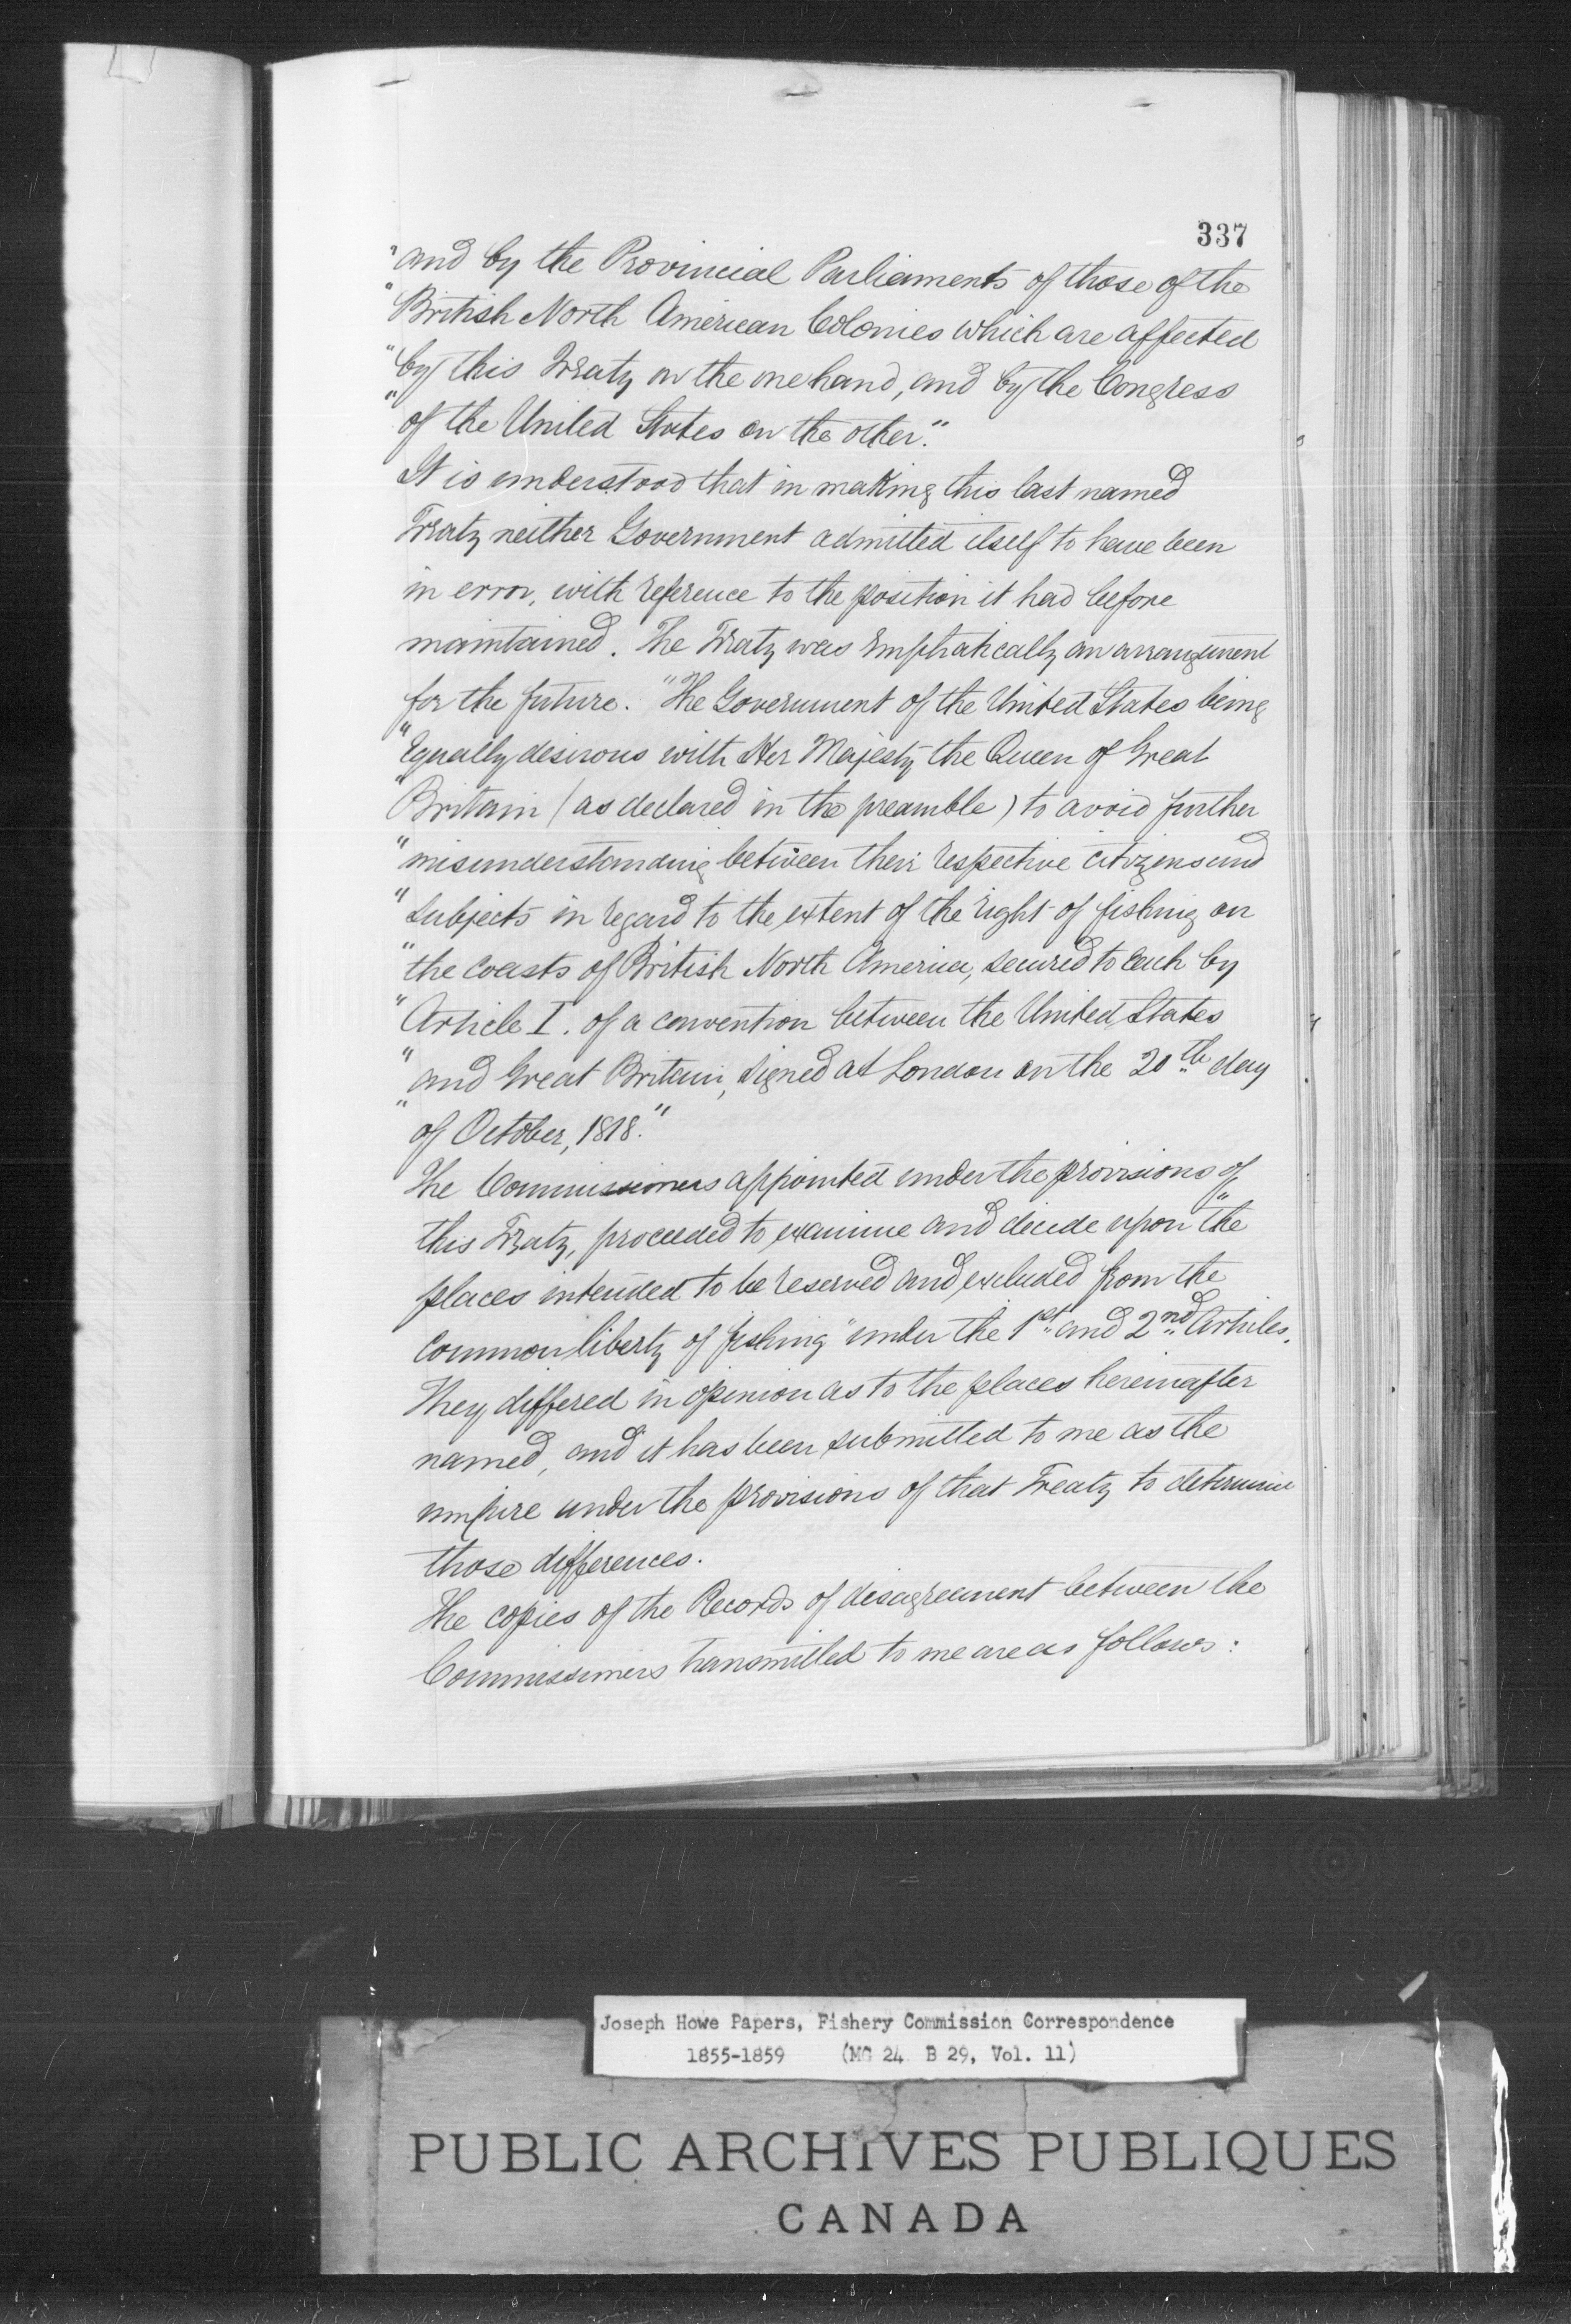 337
"and by the Provincial Parliaments of those of the
"British North American Colonies which are affected
"by this Treaty on the one hand, and by the Congress
"of the United States on the other."
It is understood that in making this last named
Treaty neither Government admitted itself to have been
in error, with reference to the position it had before
maintained. The Treaty was emphatically an arrangement
for the future. "The Government of the United States being
"equally desirous with Her Majesty the Queen of Great
"Britain (as declared in the preamble) to avoid further
"misunderstanding between their respective citizens and
"subjects in regard to the extent of the right of fishing on
"the coasts of British North America, secured to each by
"Article I. of a convention between the United States
"and Great Britain, signed at London on the 20th day
"of October, 1818."
The Commissioners appointed under the provisions of
this Treaty, proceeded to examine and decide upon "the
places intended to be reserved and excluded from the
common liberty of fishing" under the 1st and 2nd Articles.
They differed in opinion as to the places hereinafter
named, and it has been submitted to me as the
umpire under the provisions of that Treaty to determine
those differences.
The copies of the Records of disagreement between the
Commissioners transmitted to me are as follows:
Joseph Howe Papers, Fishery Commission Correspondence
1855-1859 (MG 24 B 29, Vol. 11)
PUBLIC ARCHIVES PUBLIQUES
CANADA